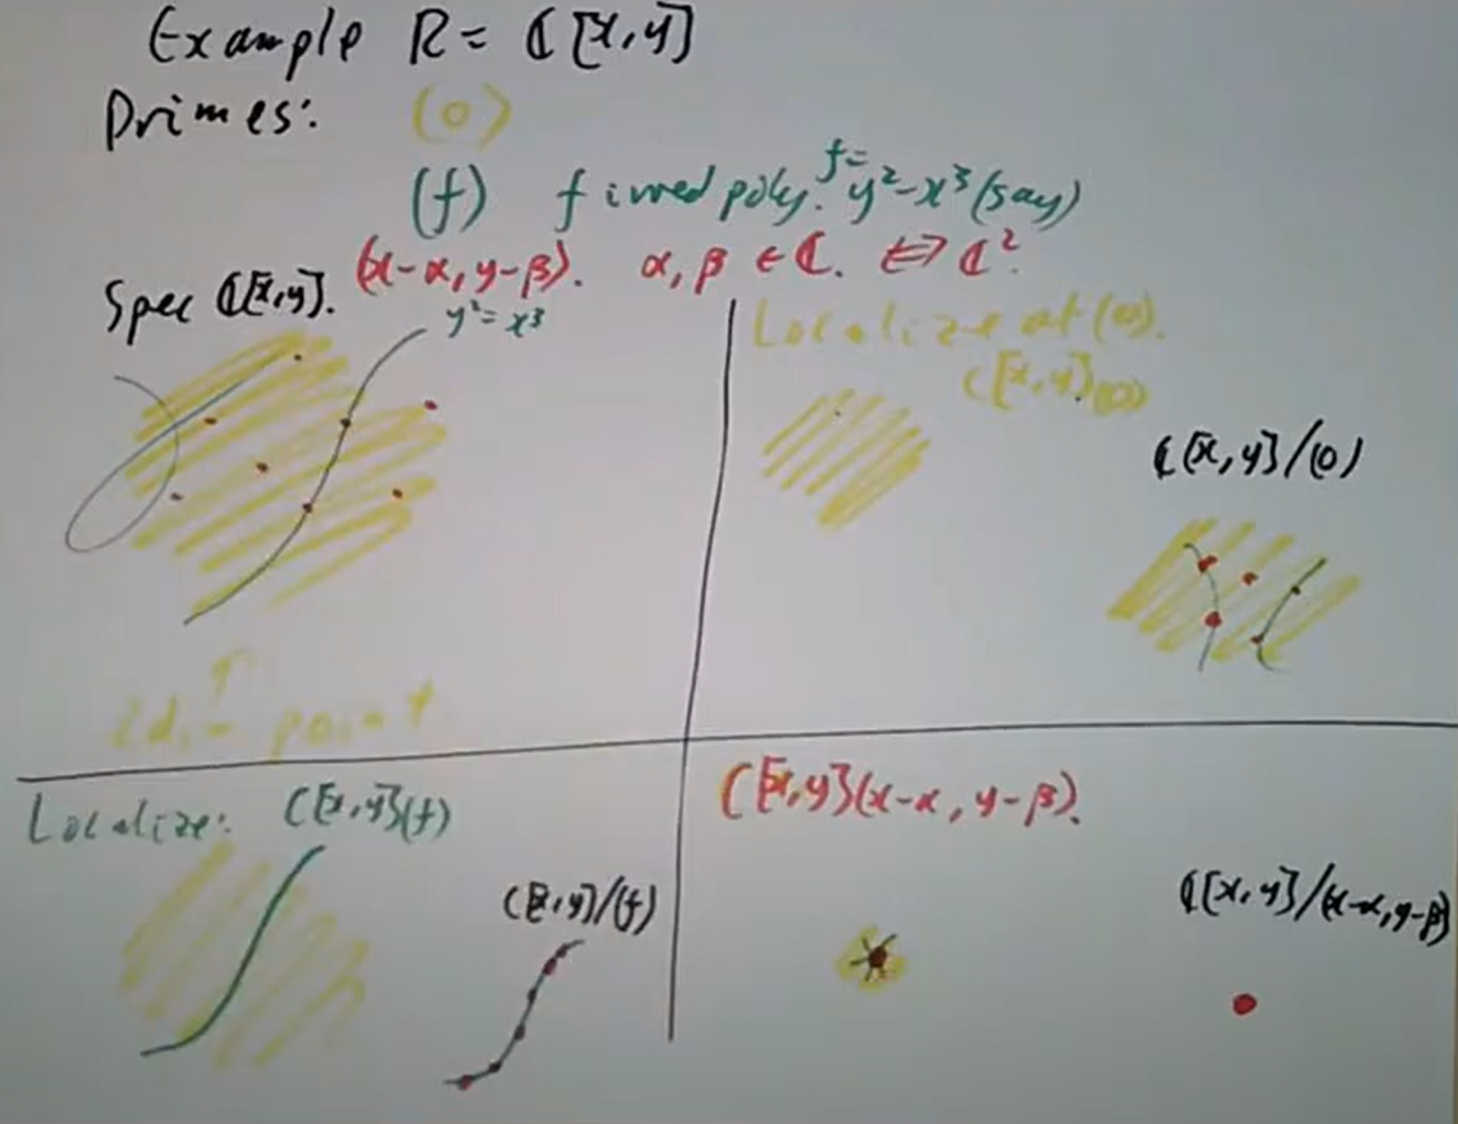 Example R = ℂ[x,y]
Primes: (0)
(f) f irred poly. f= y²-x³ (say)
(x-α, y-β). α, β ∈ ℂ. ⟺ ℂ².
Spec ℂ[x,y].
y²=x³
↑
2dim point
Localize at (0).
ℂ[x,y](0)
ℂ[x,y]/(0)
Localize: ℂ[x,y](f)
ℂ[x,y]/(f)
ℂ[x,y](x-α, y-β).
ℂ[x,y]/(x-α,y-β)